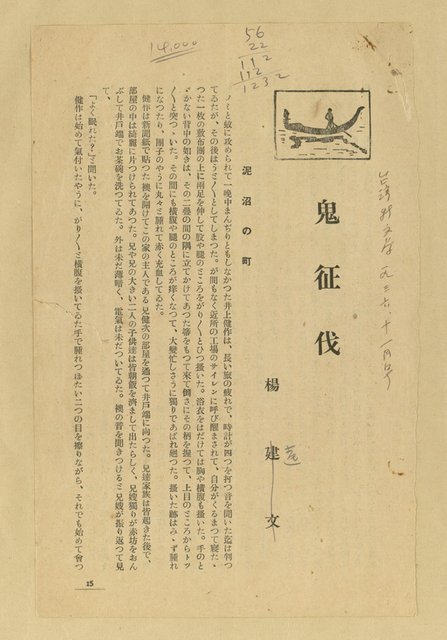 14,000
56
22
112
112
1232
鬼征伐
楊建文
逵
泥沼の町
ノミと蚊に攻められて一晩中まんぢりともしなかつた井上健作は、長い旅の疲れで、時計が四つを打つ音を聞いた迄は判つ
てゐたが、その後はうとノ\としてしまつた。が間もなく近所の工場のサイレンに呼び醒まされて、自分がくるまつて寝た・
つた一枚の敷布團の上に兩足を伸して股や腿のところをがりノ\とひつ掻いた。浴衣をはだけては胸や橫腹も掻いた。手のと
どかない背中の如きは、その二疊の間の隅に立てかけてあつた箒をもつて來て倒さにその柄を握つて、上目のところからトツ
ノ\と突つゝいた。その間にも橫腹や腿のところが痒くなつて、大變忙しさうに獨りであばれ廻つた。掻いた跡はみゝず腫れ
になつたり、團子のやうに丸々と腫れて赤く充血してゐた。
健作は新聞紙で貼つた襖を開けてこの家の主人である兄健次の部屋を通つて井戶端に向つた。兄達家族は皆起きた後で、
部屋の中は綺麗に片づけられてあつた。兄や兄の大きい二人の子供達は皆朝飯を濟まして出たらしく、兄嫂獨りが赤坊をおん
ぶして井戶端でお茶碗を洗つてゐた。外は未だ薄暗く、電氣は未だついてゐた。襖の音を聞きつけると兄嫂が振り返つて見
て、
「よく眠れた?」と聞いた。
健作は始めて氣付いたやうに、がりノ\と橫腹を掻いてゐた手で腫れつゆたい二つの目を擦りながら、それでも始めて會つ
15